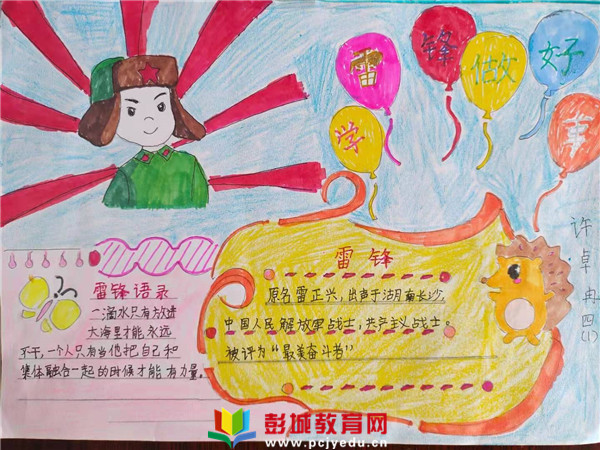 学雷锋做好事
许卓冉 四(1)
雷锋语录
一滴水只有放进
大海里才能永远
不干,一个人只有当他把自己和
集体融合一起的时候才能有力量。
雷锋
原名雷正兴,出声于湖南长沙.
中国人民解放军战士,共产主义战士。
被评为“最美奋斗者”
彭城教育网
www.pcjyedu.cn